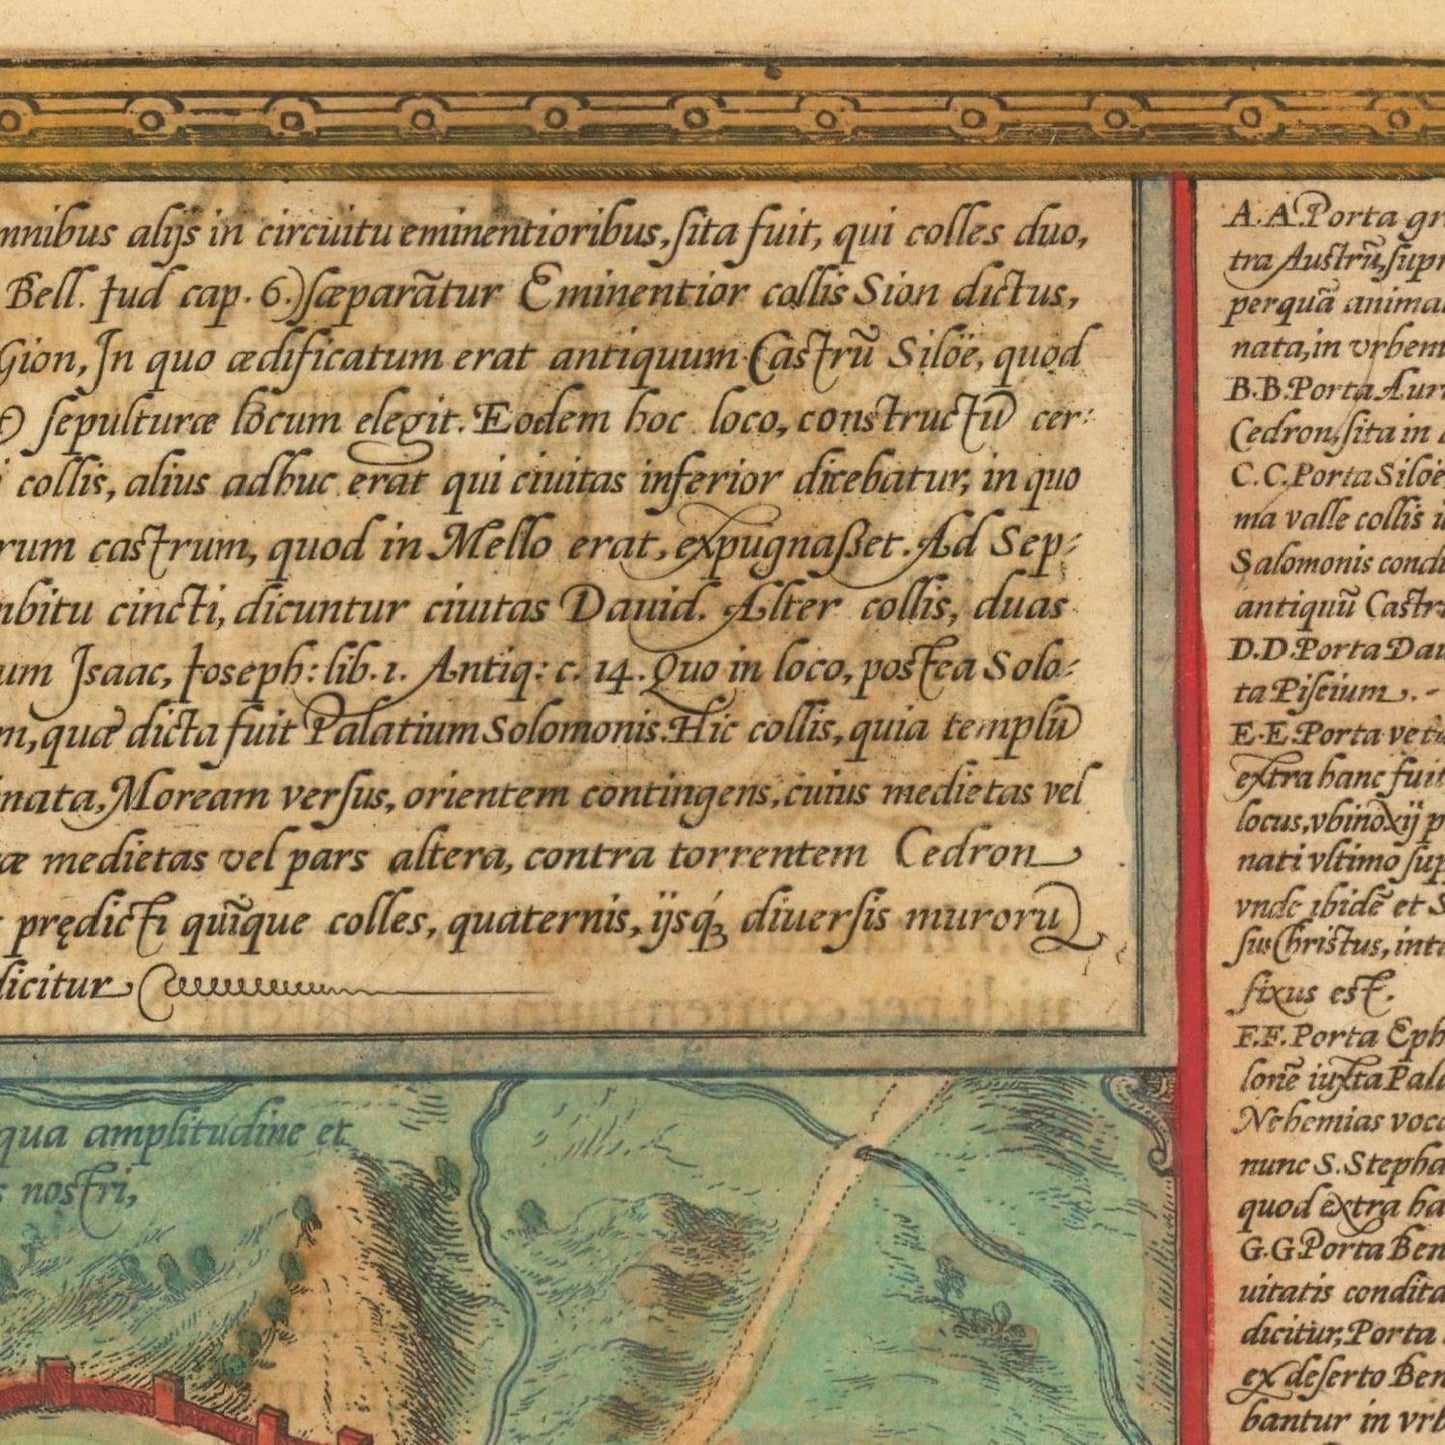 mnibus alijs in circuitu eminentioribus, ſita fuit, qui colles duo,
Bell. Iud cap. 6.) ſæparãtur Eminentior collis Sion dictus,
Gion, In quo ædificatum erat antiquum Castrũ Siloë, quod
ſepulturæ locum elegit. Eodem hoc loco, constructũ cer:
collis, alius adhuc erat qui ciuitas inferior dicebatur, in quo
rum castrum, quod in Mello erat, expugnaßet. Ad Sep:
mbitu cincti, dicuntur ciuitas Dauid. Alter collis, duas
um Isaac, Ioseph: lib. 1. Antiq: c. 14. Quo in loco, postea Solo:
m, quæ dicta fuit Palatium Solomonis. Hic collis, quia templũ
nata, Moream verſus, orientem contingens, cuius medietas vel
æ medietas vel pars altera, contra torrentem Cedron
prędicti quĩque colles, quaternis, ijsq́ȝ diuerſis murorũ
dicitur
qua amplitudine et
s nostri,
A.A. Porta gr
tra Austrũ, ſupr
per quã animal
nata, in vrbem
B.B. Porta Aur
Cedron, ſita in
C.C. Porta Siloë
ma valle collis
Salomonis condi
antiquũ Castr
D.D. Porta Dau
ta Piſcium. -
E.E. Porta vet
extra hanc fuit
locus, vbi noxij p
nati vltimo ſup
vnde ibidẽ et S
ſus Christus, int
fixus est.
F.F. Porta Eph
lonẽ iuxta Pala
Nehemias voc
nunc S. Stepha
quod extra ha
G.G. Porta Ben
uitatis condita
dicitur, Porta
ex deſerto Ben
bantur in vrb